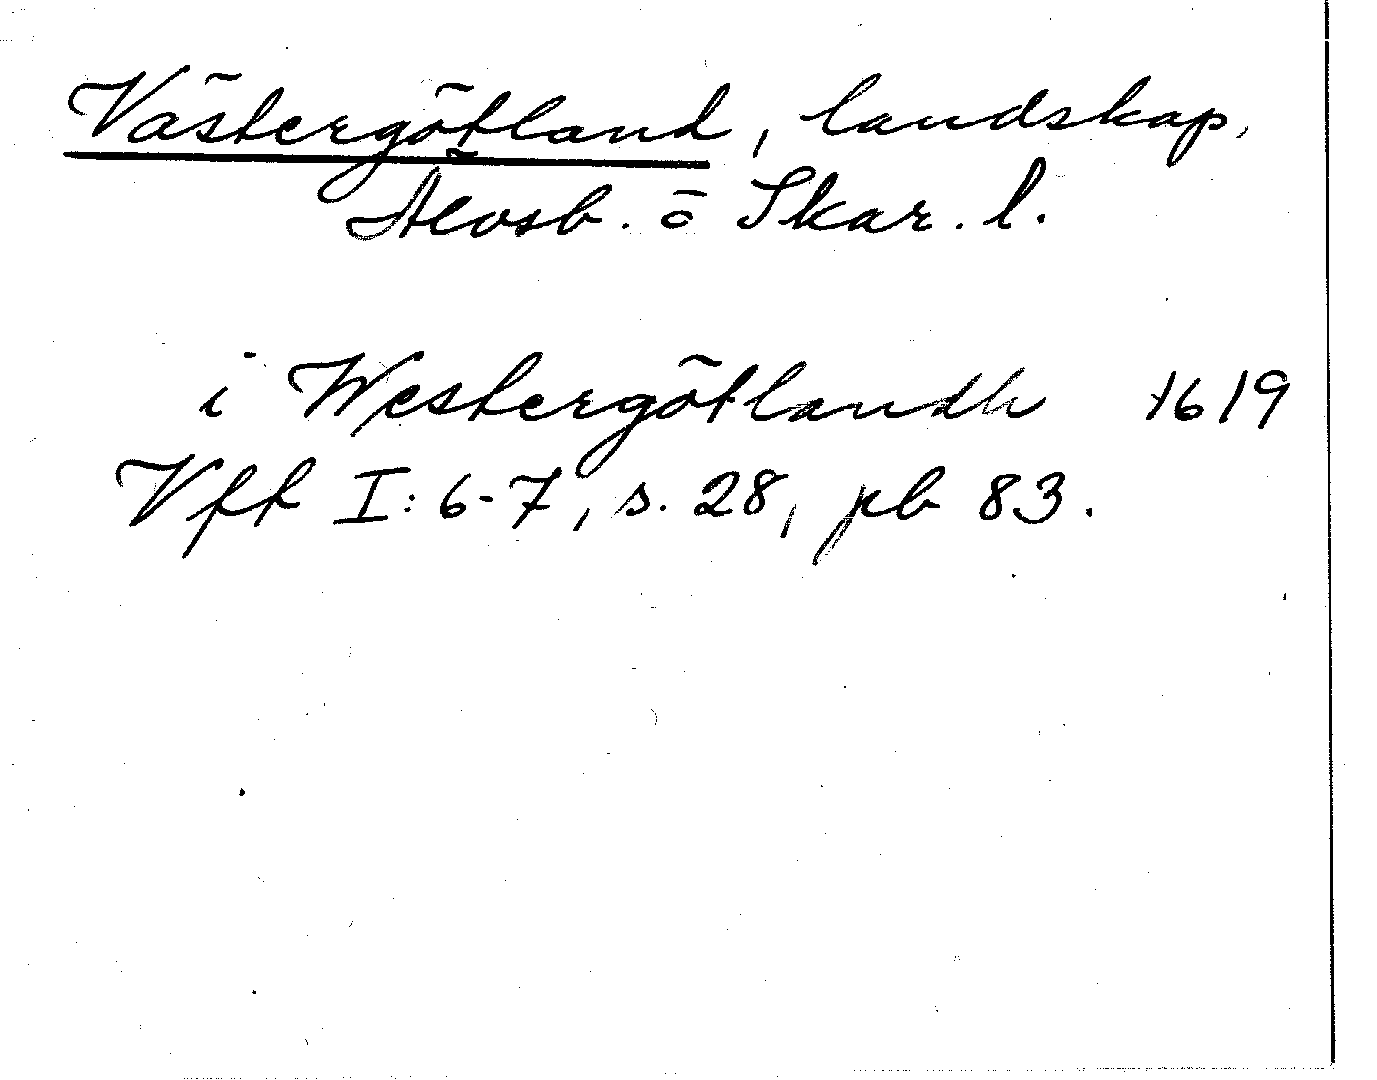 Västergötland, landskap,
Älvsb. o Skar. l.
i Westergötlandh 1619
Vft I: 6-7, s. 28, pb 83.